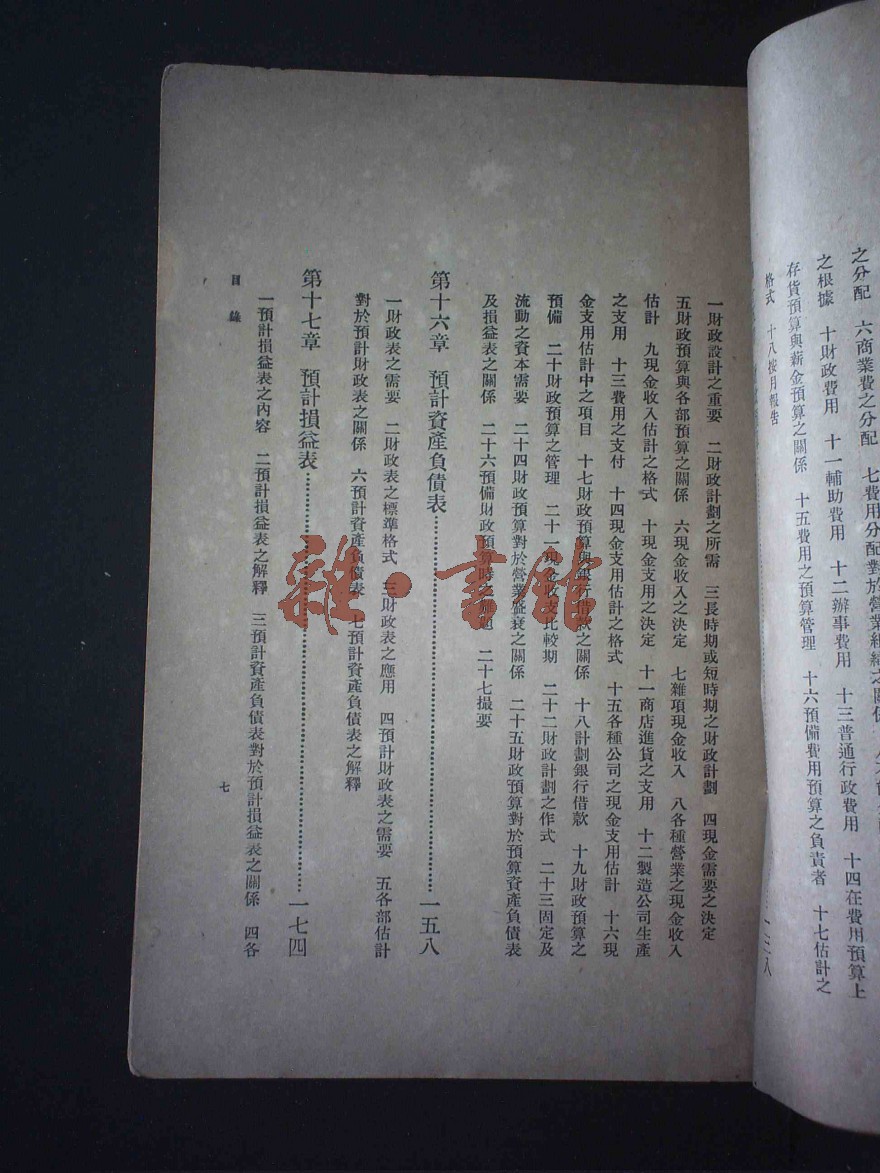 之分配　六商業費之分配　七費用分配對於營業組織之關係
之根據　十財政費用　十一輔助費用　十二辦事費用　十三普通行政費用　十四在費用預算上
存貨預算與薪金預算之關係　十五費用之預算管理　十六預備費用預算之負責者　十七估計之
格式　十八按月報告
一三八
一財政設計之重要　二財政計劃之所需　三長時期或短時期之財政計劃　四現金需要之決定
五財政預算與各部預算之關係　六現金收入之決定　七雜項現金收入　八各種營業之現金收入
估計　九現金收入估計之格式　十現金支用之決定　十一商店進貨之支用　十二製造公司生產
之支用　十三費用之支付　十四現金支用估計之格式　十五各種公司之現金支用估計　十六現
金支用估計中之項目　十七財政預算與銀行借款之關係　十八計劃銀行借款　十九財政預算之
預備　二十財政預算之管理　二十一現金收支比較期　二十二財政計劃之作式　二十三固定及
流動之資本需要　二十四財政預算對於營業盛衰之關係　二十五財政預算對於預算資產負債表
及損益表之關係　二十六預備財政預算時之難題　二十七撮要
第十六章　預計資產負債表……………………一五八
一財政表之需要　二財政表之標準格式　三財政表之應用　四預計財政表之需要　五各部估計
對於預計財政表之關係　六預計資產負債表　七預計資產負債表之解釋
第十七章　預計損益表……………………一七四
一預計損益表之內容　二預計損益表之解釋　三預計資產負債表對於預計損益表之關係　四各
目錄
七
雜·書館